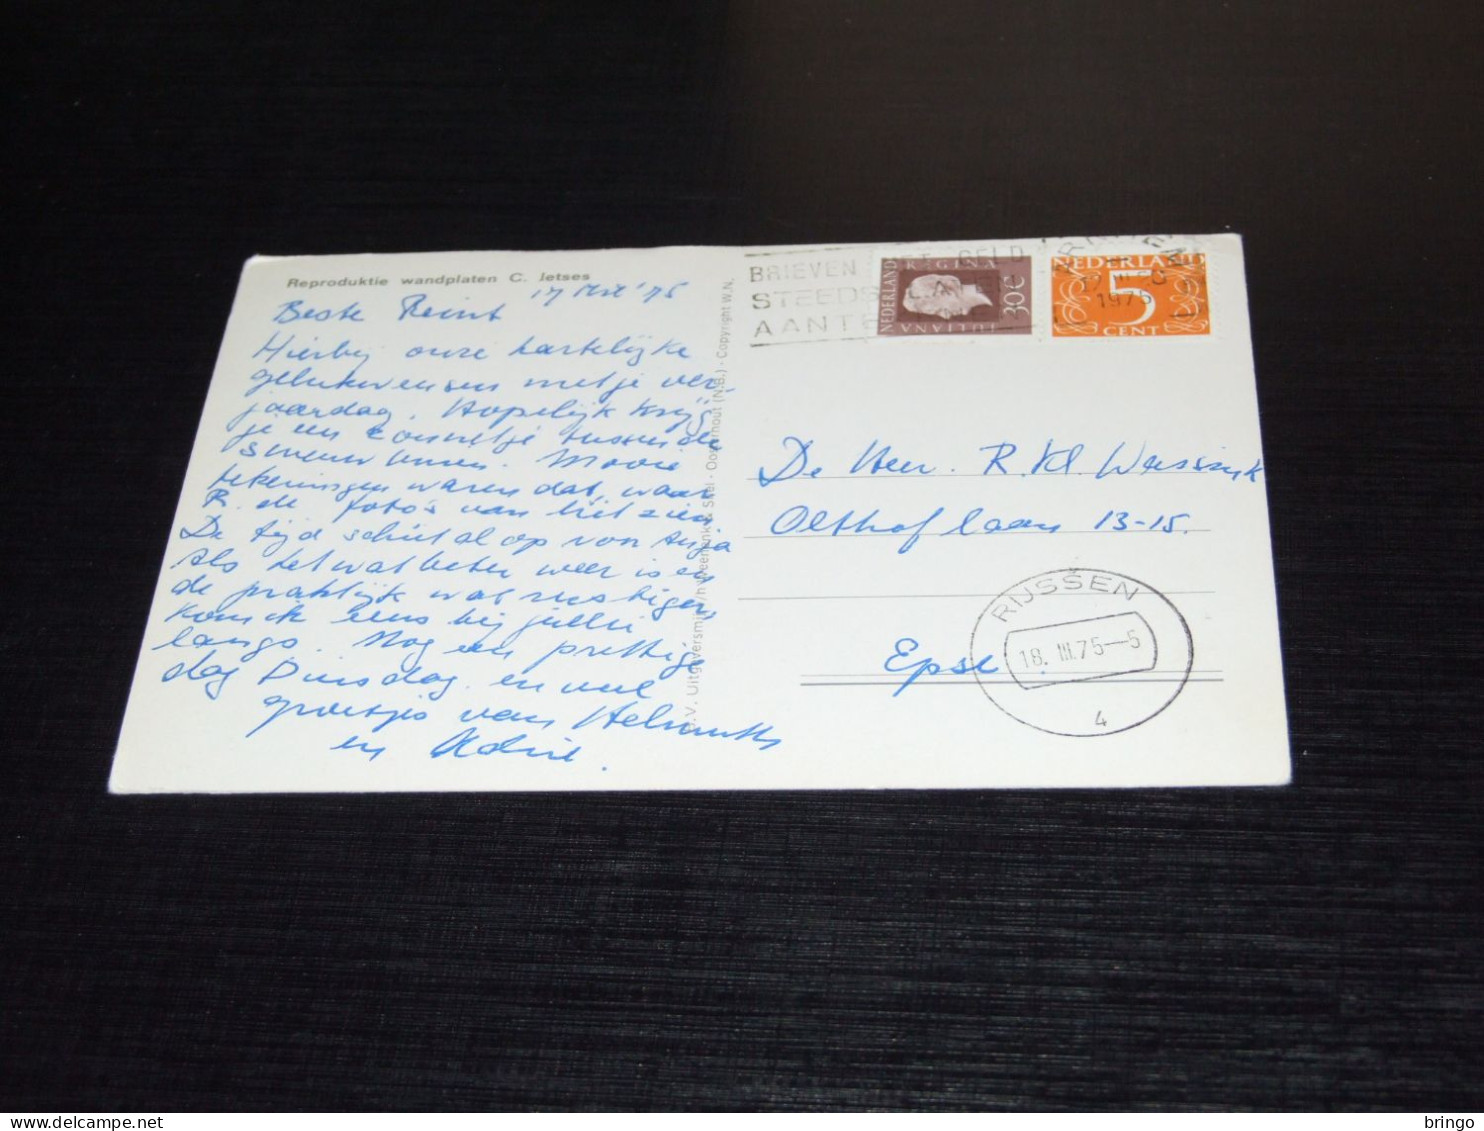 Reproduktie wandplaten C. Jetses
17 Mrt '75
Beste Reint
Hierbij onze hartelijke
gelukwensen met je ver-
jaardag. Hopelijk krijg
je een zonnetje tussen de
sneeuw . Mooie
tekeningen waren dat, waar
R. de foto's van liet zien
De tijd schiet al op voor Anja
Als het wat beter weer is en
de praktijk wat rustiger
kom ik eens bij jullie
langs. Nog een prettige
dag Dinsdag en veel
groetjes van
en
B.V. Uitgeversmij. Oosterhout (N.B.) - Copyright W.N.
BRIEVEN GELD
STEEDS
AANTE
NEDERLAND
JULIANA
REGINA
30c
NEDERLAND
5
CENT
1975
De Heer. R. Kl.
Olthoflaan 13-15.
Epse
RIJSSEN
18. III.75-5
4
bringo